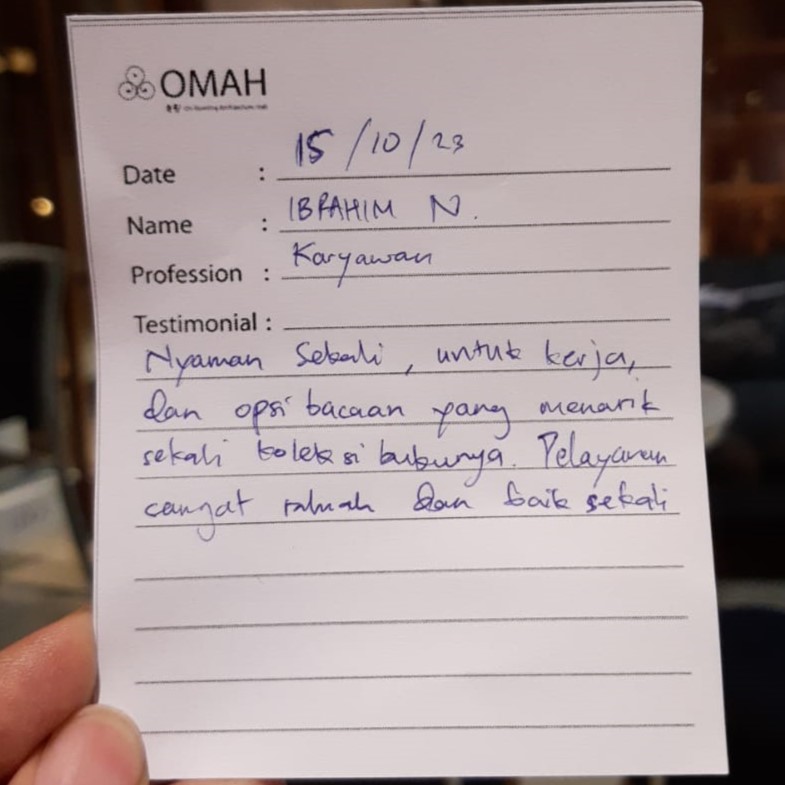 OMAH
Date : 15/10/23
Name : IBRAHIM N.
Profession : Karyawan
Testimonial :
Nyaman Sekali, untuk kerja,
dan opsi bacaan yang menarik
sekali koleksi bukunya. Pelayanan
sangat ramah dan baik sekali